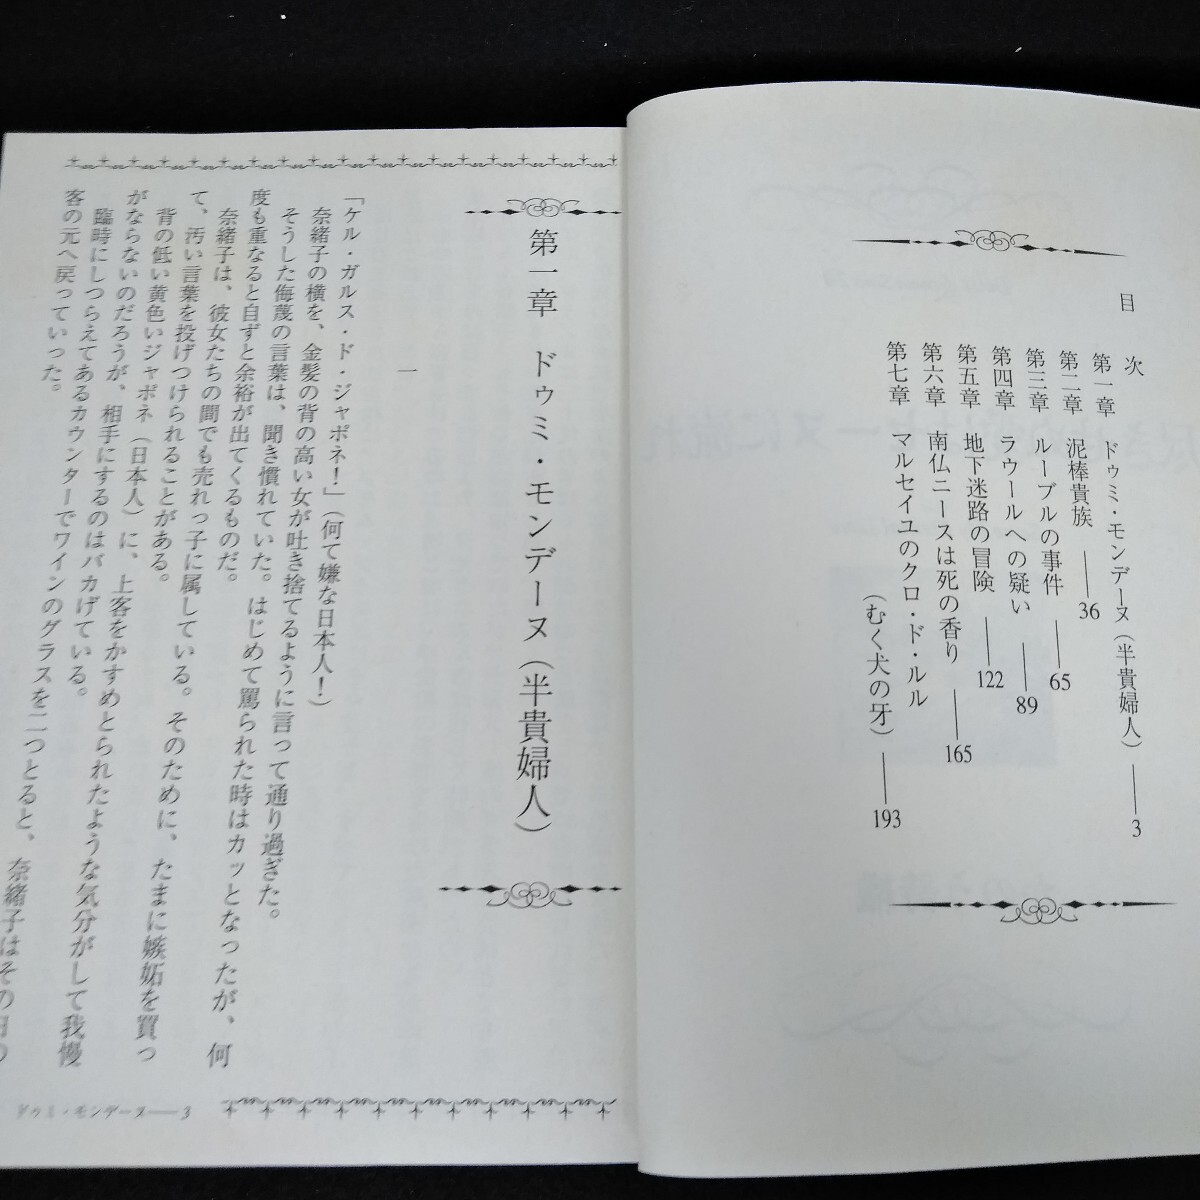 目次
第一章 ドゥミ・モンデーヌ(半貴婦人)——3
第二章 泥棒貴族——36
第三章 ルーブルの事件——65
第四章 ラウールへの疑い——89
第五章 地下迷路の冒険——122
第六章 南仏ニースは死の香り——165
第七章 マルセイユのクロ・ド・ルル
(むく犬の牙)——193
第一章 ドゥミ・モンデーヌ(半貴婦人)
一
「ケル・ガルス・ド・ジャポネ!」(何て嫌な日本人!)
奈緒子の横を、金髪の背の高い女が吐き捨てるように言って通り過ぎた。
そうした侮蔑の言葉は、聞き慣れていた。はじめて罵られた時はカッとなったが、何
度も重なると自ずと余裕が出てくるものだ。
奈緒子は、彼女たちの間でも売れっ子に属している。そのために、たまに嫉妬を買っ
て、汚い言葉を投げつけられることがある。
背の低い黄色いジャポネ(日本人)に、上客をかすめとられたような気分がして我慢
がならないのだろうが、相手にするのはバカげている。
臨時にしつらえてあるカウンターでワインのグラスを二つとると、奈緒子はその日の
客の元へ戻っていった。
ドゥミ・モンデーヌ——3